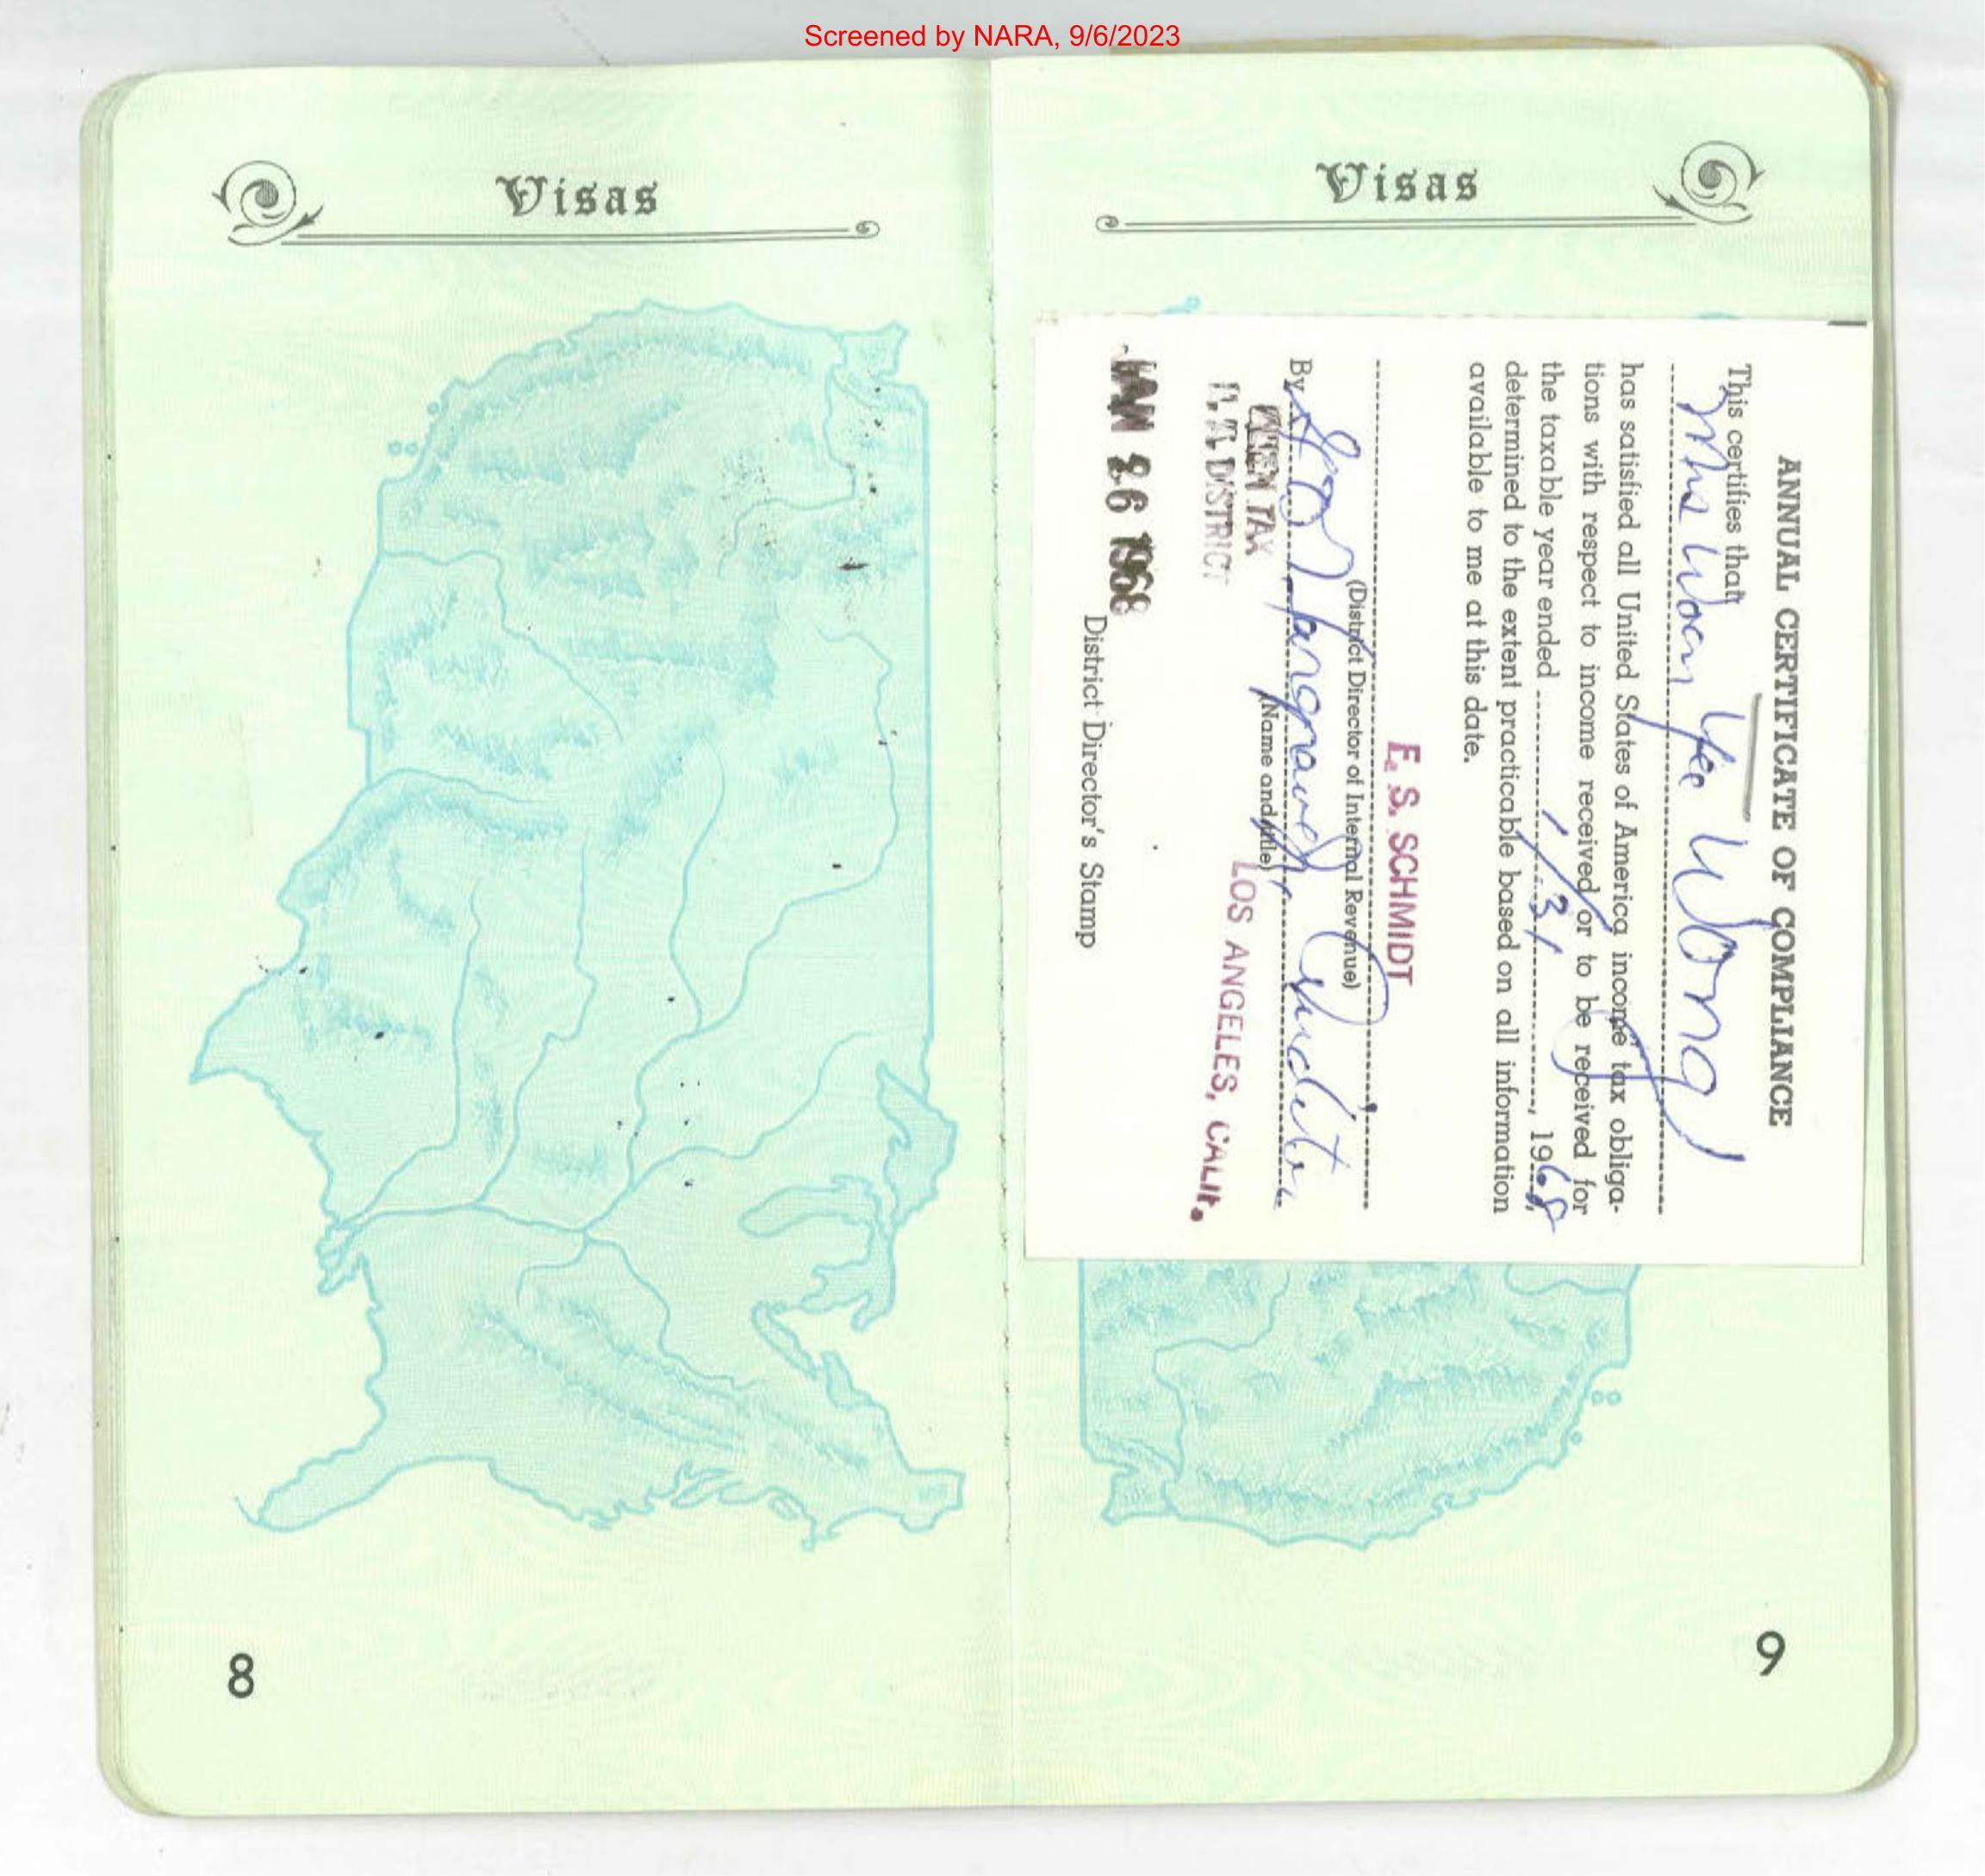 Screened by NARA, 9/6/2023
Visas
8
Visas
ANNUAL CERTIFICATE OF COMPLIANCE
This certifies that
Mrs Woon Yee Wong
has satisfied all United States of America income tax obliga-
tions with respect to income received or to be received for
the taxable year ended 1/31, 1968,
determined to the extent practicable based on all information
available to me at this date.
E. S. SCHMIDT
(District Director of Internal Revenue)
By
(Name and title)
ALIEN TAX
L.A. DISTRICT
LOS ANGELES, CALIF.
JAN 26 1968
District Director's Stamp
9